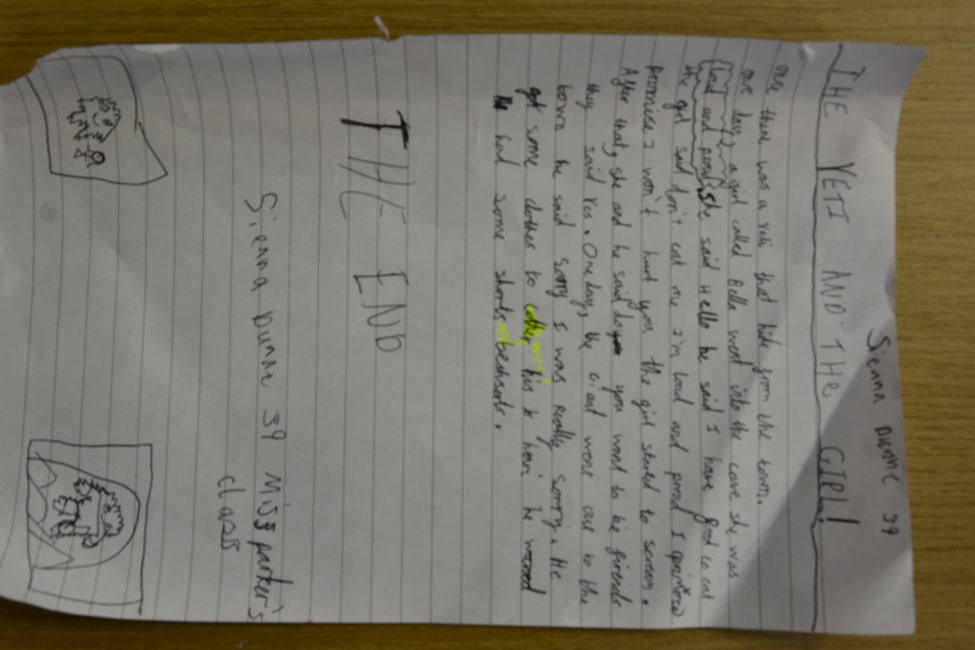 Sienna Dunne 39
THE YETI AND THE GIRL!
once there was a yeti that hide from the town.
one day, a girl called Bella went into the cave she was
loud and proud, she said Hello he said I have food to eat
the girl said don't eat me I'm loud and proud I
promise I won't hurt you the girl started to scream.
After that, she and he said do you want to be friends
they said yes. One day, the giant went out to the
town he said sorry I was really sorry. He
got some clothes to his he
had some shorts
THE END
Sienna Dunne 39 Miss parker's
class